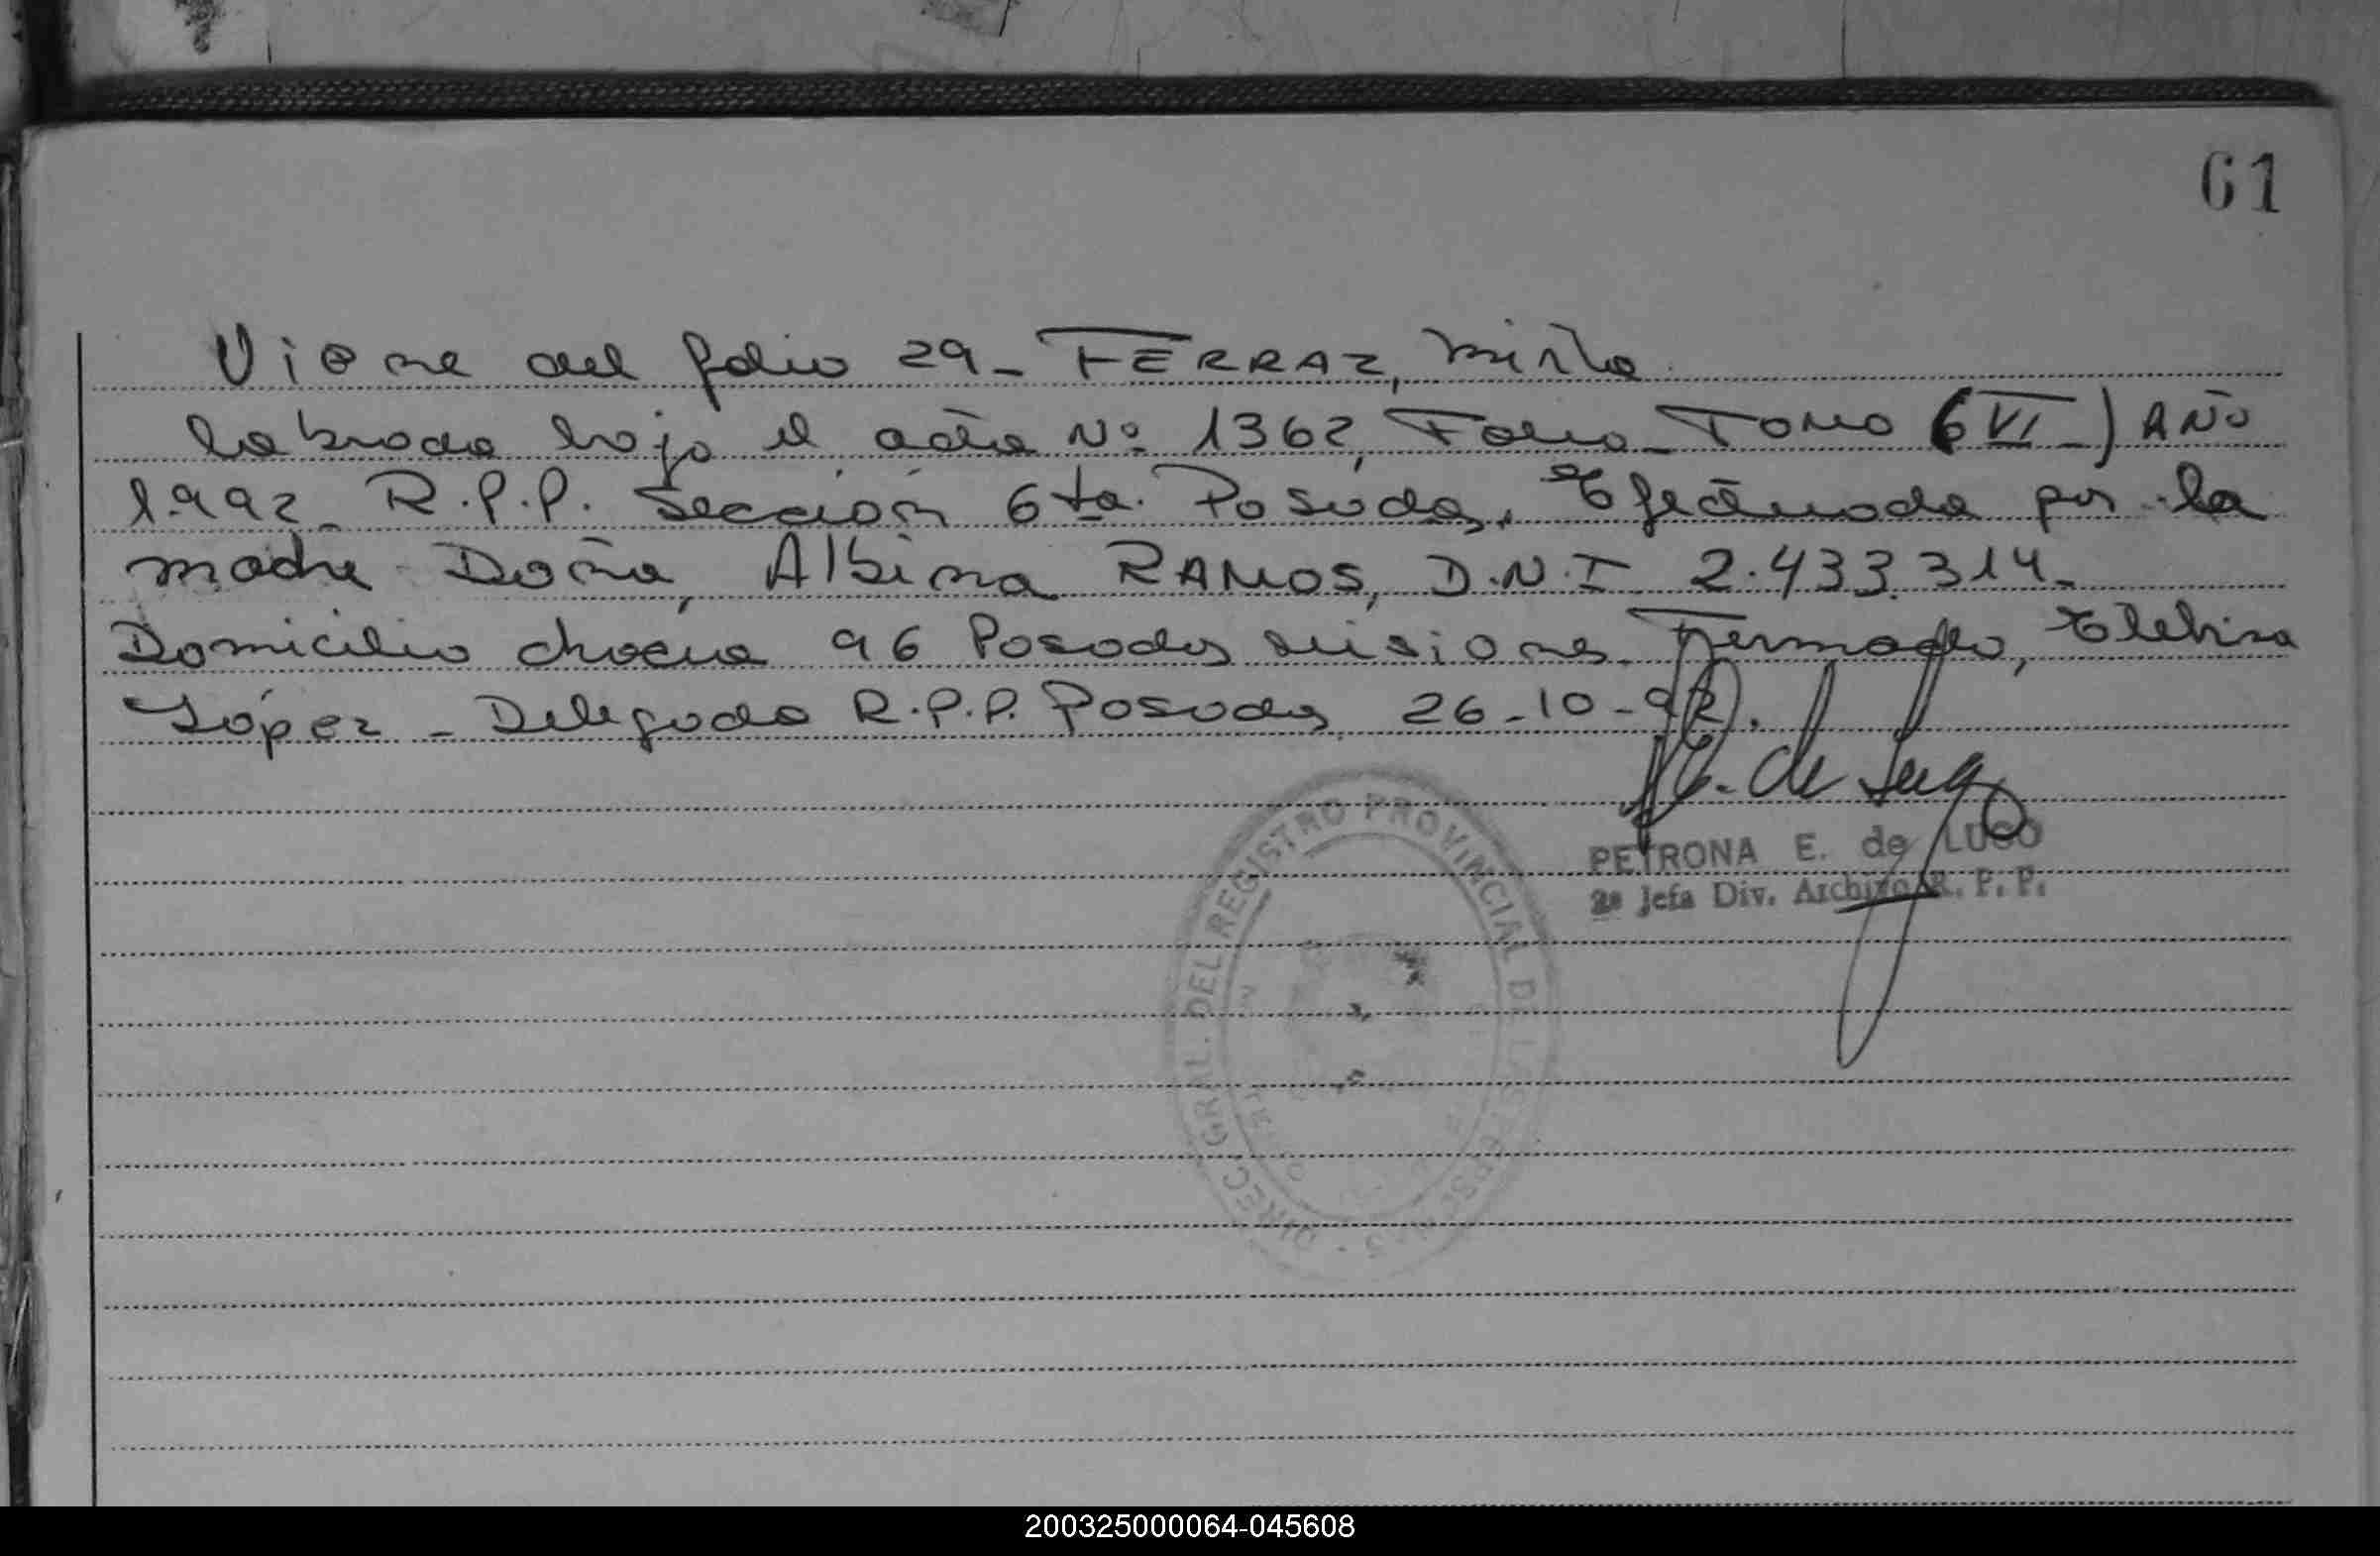 61
Viene del folio 29- FERRAZ, Mirta
labrada bajo el acta Nº 1362, Folio- Tomo (6 VI-) AÑO
1.992- R.P.P. Sección 6ta. Posadas. Efectuada por la
madre Doña, Albina RAMOS, D.N.I 2.433.314-
Domicilio chacra 96 Posadas Misiones. Firmado,
López - Delegada R.P.P. Posadas 26-10-92.
de Lugo
PETRONA E. de LUGO
2ª Jefa Div. Archivo R. P. P.
DIREC. GRAL. DEL REGISTRO PROVINCIAL DE LAS PERSONAS
200325000064-045608